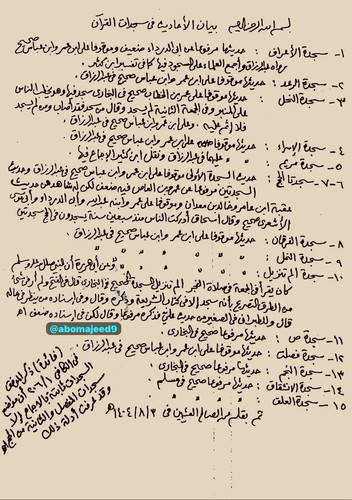 بسم الله الرحمن الرحيم بيان الأحاديث في سجدات القرآن
١- سجدة الأعراف : حديثها مرفوعا عن أبي الدرداء ضعيف وموقوفا على ابن عمر وابن عباس صحيح
رواه عبدالرزاق وأجمع العلماء على السجود فيها كما في تفسير ابن كثير .
٢- سجدة الرعد : حديثها موقوفا على ابن عمر وابن عباس صحيح في عبدالرزاق .
٣- سجدة النحل : حديثها موقوفا على عمر بن الخطاب صحيح في البخاري سجد فيها وهو يخطب الناس
على المنبر وفي الجمعة الثانية لم يسجد وقال من سجد فقد أصاب ومن لم يسجد
فلا إثم عليه . وعلى ابن عمر وابن عباس صحيح في عبدالرزاق .
٤- سجدة الإسراء : حديثها موقوفا على ابن عمر وابن عباس صحيح في عبدالرزاق .
٥- سجدة مريم : " " عليهما في عبدالرزاق ونقل ابن كثير الإجماع فيها
٦-٧- سجدتا الحج : حديث السجدة الأولى موقوفا على ابن عمر وابن عباس صحيح في عبدالرزاق وحديث
السجدتين مرفوعا عن عمرو بن العاص فيه ضعف لكن له شاهد من حديث
عقبة بن عامر وخالد بن معدان وموقوفا على عمر وابنه عبدالله وأبي الدرداء وأبي موسى
الأشعري صحيح وقال أبو إسحاق أدركت الناس منذ سبعين سنة يسجدون في الحج سجدتين
٨- سجدة الفرقان : حديثها موقوفا على ابن عمر وابن عباس صحيح في عبدالرزاق .
٩- سجدة النمل : " " " " " "
١٠- سجدة ألم تنزيل : " " " " " وعن أبي هريرة أن النبي صلى الله عليه وسلم
كان يقرأ في الجمعة في صلاة الفجر ألم تنزيل السجدة صحيح في البخاري قال في الفتح ولم أر في شيء
من الطرق التصريح بأنه سجد إلا في كتاب الشريعة وقال وفي إسناده من ينظر في حاله
وقال وللطبراني في الصغير من حديث علي فذكره مرفوعا وقال لكن في إسناده ضعف اهـ
١١- سجدة ص : حديثها مرفوعا صحيح في البخاري .
١٢- سجدة فصلت : حديثها موقوفا على ابن عمر وابن عباس صحيح في عبدالرزاق .
١٣- سجدة النجم : حديثها مرفوعا صحيح في البخاري .
١٤- سجدة الانشقاق : حديثها مرفوعا صحيح في مسلم .
١٥- سجدة العلق : " " " " "
تم بقلم محمد الصالح العثيمين في ١٤٠٤/٨/٣هـ
@abomajeed9
(فائدة)
السجدات ثابتة بالإجماع إلا
سجدات المفصل والثانية من الحج
وقد عرفت أدلة ذلك